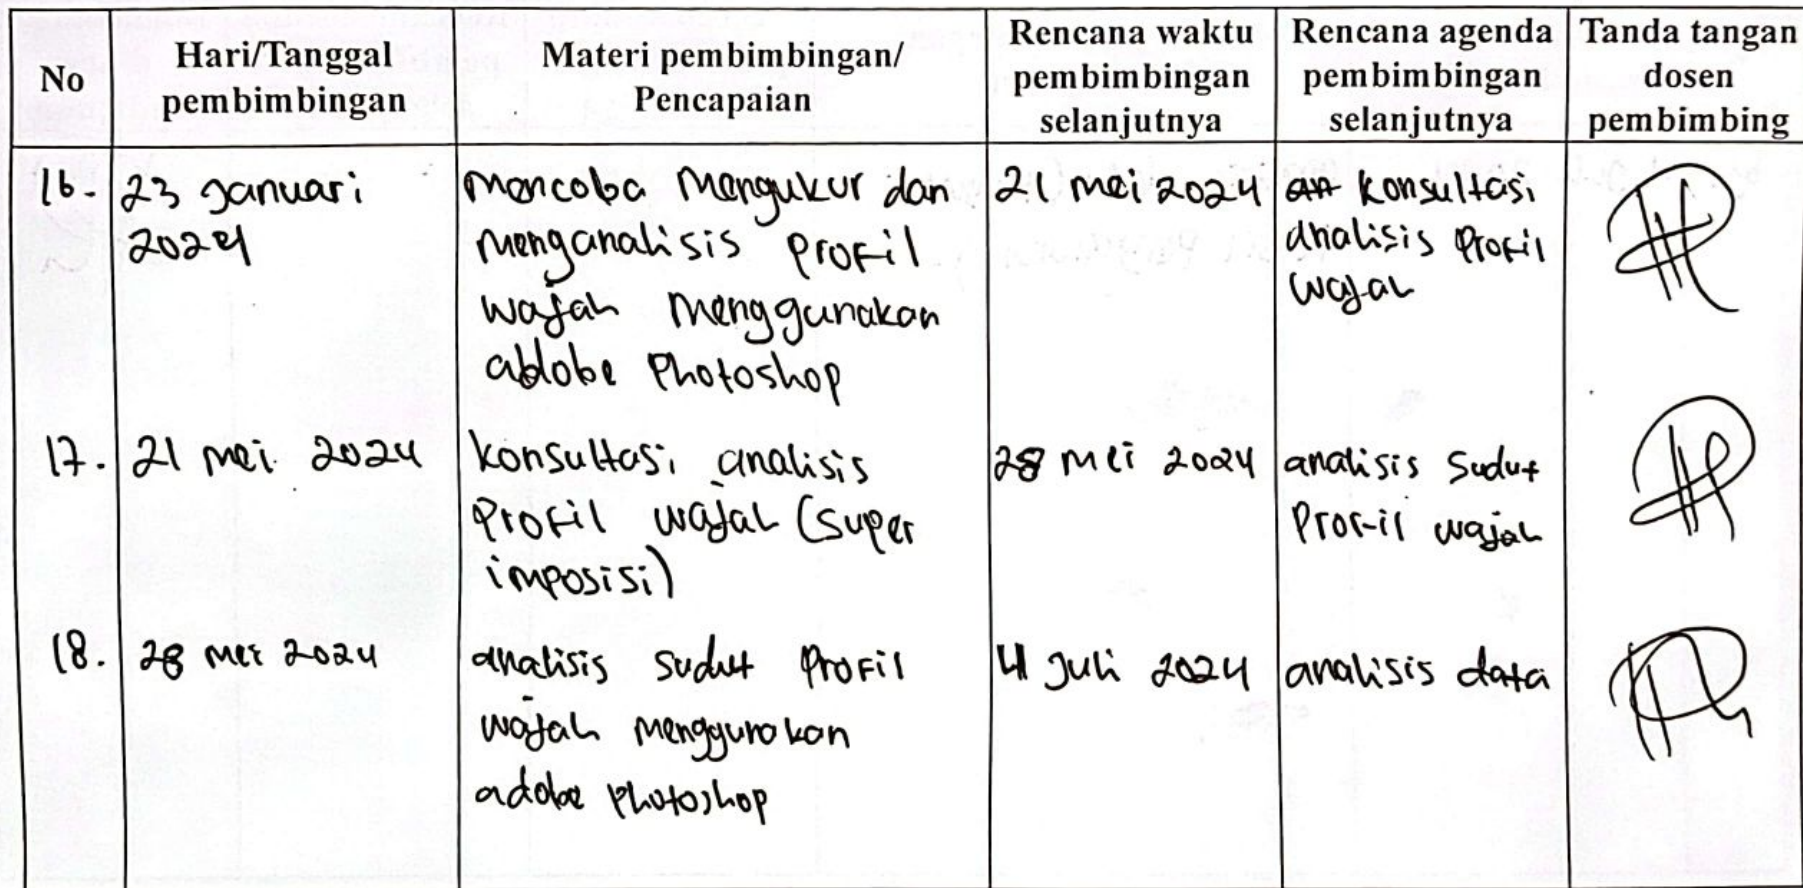 No
Hari/Tanggal
pembimbingan
Materi pembimbingan/
Pencapaian
Rencana waktu
pembimbingan
selanjutnya
Rencana agenda
pembimbingan
selanjutnya
Tanda tangan
dosen
pembimbing
16.
23 Januari
2024
Mencoba Mengukur dan
Menganalisis Profil
wajah Menggunakan
adobe Photoshop
21 Mei 2024
konsultasi
analisis Profil
wajah
17.
21 Mei 2024
konsultasi analisis
Profil wajah (super
imposisi)
28 Mei 2024
analisis Sudut
Profil wajah
18.
28 Mei 2024
analisis sudut Profil
wajah Menggunakan
adobe Photoshop
4 Juli 2024
analisis data